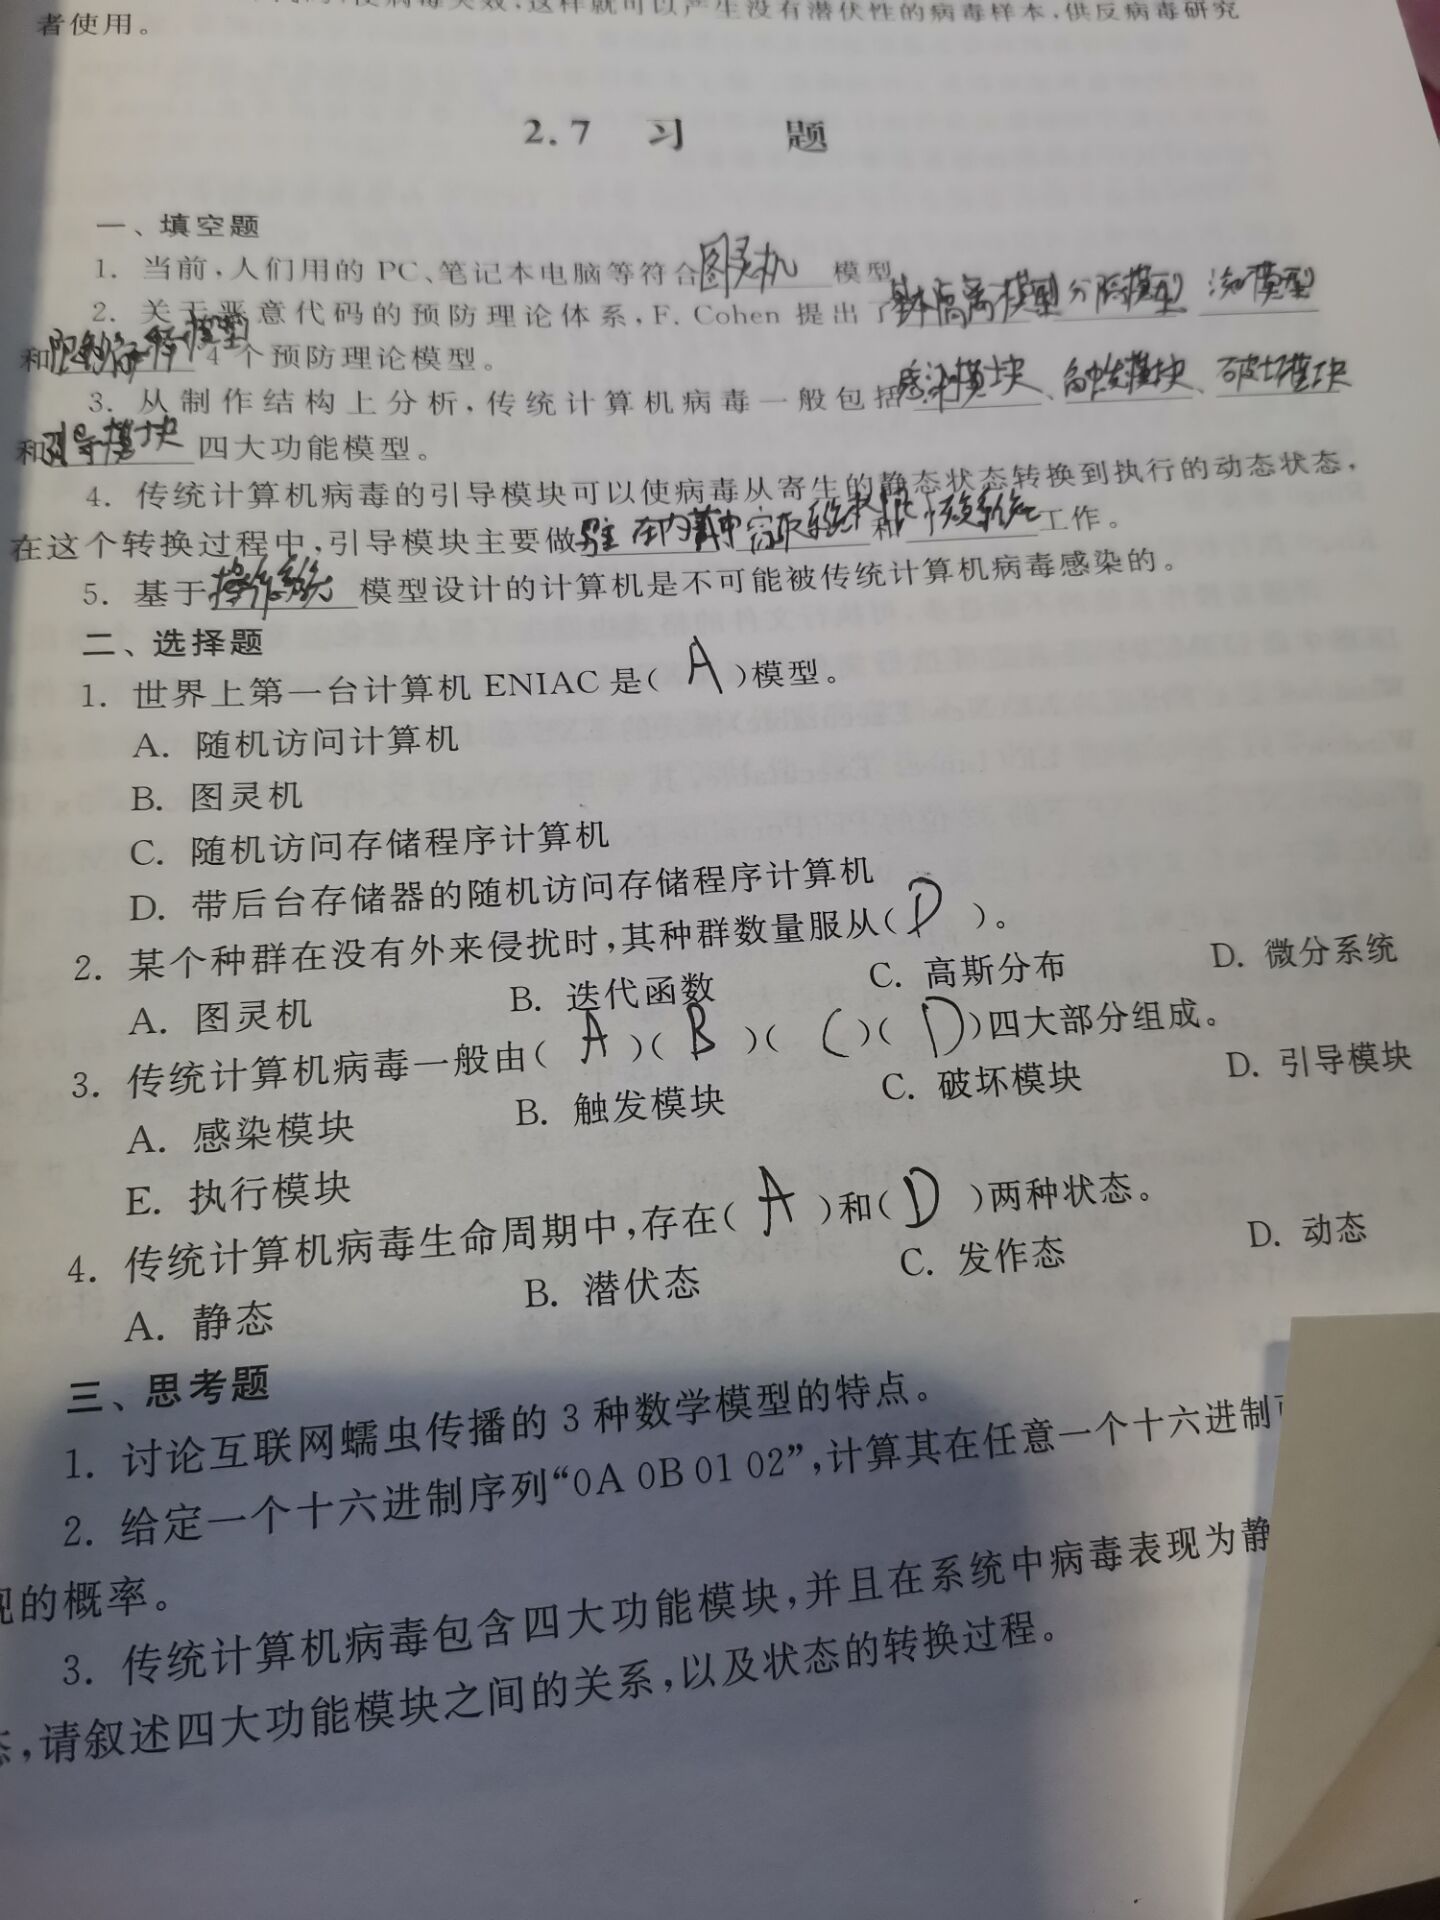 者使用。
2.7 习 题
一、填空题
1. 当前,人们用的 PC、笔记本电脑等符合图灵机模型
2. 关于恶意代码的预防理论体系,F. Cohen 提出了基本隔离模型 分隔模型 流模型
和限制解释模型 4 个预防理论模型。
3. 从制作结构上分析,传统计算机病毒一般包括感染模块、触发模块、破坏模块
和引导模块四大功能模型。
4. 传统计算机病毒的引导模块可以使病毒从寄生的静态状态转换到执行的动态状态,
在这个转换过程中,引导模块主要做驻在内存中 窃取系统 和恢复系统工作。
5. 基于操作系统模型设计的计算机是不可能被传统计算机病毒感染的。
二、选择题
1. 世界上第一台计算机 ENIAC 是( A )模型。
A. 随机访问计算机
B. 图灵机
C. 随机访问存储程序计算机
D. 带后台存储器的随机访问存储程序计算机
2. 某个种群在没有外来侵扰时,其种群数量服从( D )。
A. 图灵机 B. 迭代函数 C. 高斯分布 D. 微分系统
3. 传统计算机病毒一般由( A )( B )( C )( D )四大部分组成。
A. 感染模块 B. 触发模块 C. 破坏模块 D. 引导模块
E. 执行模块
4. 传统计算机病毒生命周期中,存在( A )和( D )两种状态。
A. 静态 B. 潜伏态 C. 发作态 D. 动态
三、思考题
1. 讨论互联网蠕虫传播的 3 种数学模型的特点。
2. 给定一个十六进制序列“0A 0B 01 02”,计算其在任意一个十六进制
现的概率。
3. 传统计算机病毒包含四大功能模块,并且在系统中病毒表现为静
态,请叙述四大功能模块之间的关系,以及状态的转换过程。